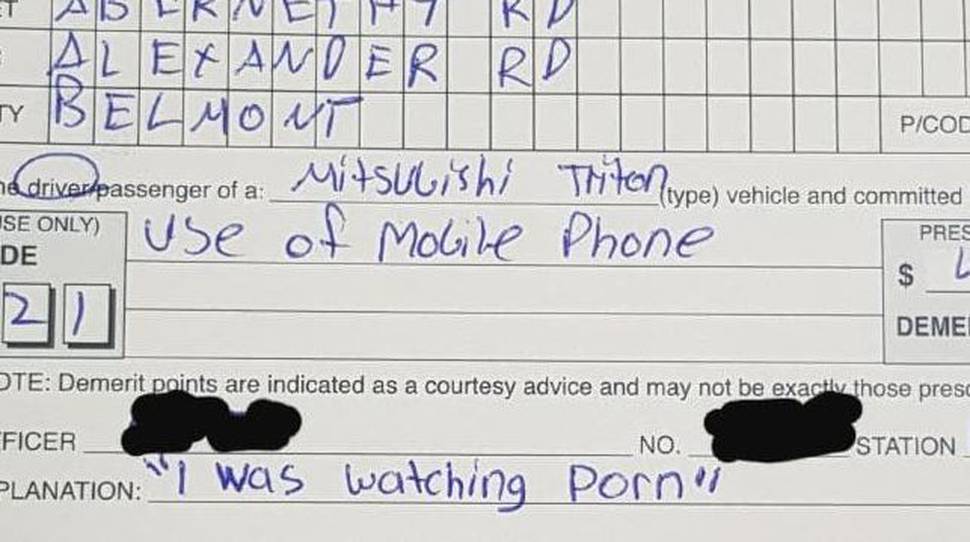 ABERNETHY RD
ALEXANDER RD
TY BELMONT P/COD
driver/passenger of a: Mitsubishi Triton (type) vehicle and committed
SE ONLY) Use of Mobile Phone PRES
DE $
21 DEME
OTE: Demerit points are indicated as a courtesy advice and may not be exactly those presc
FFICER NO. STATION
PLANATION: "I was watching Porn"